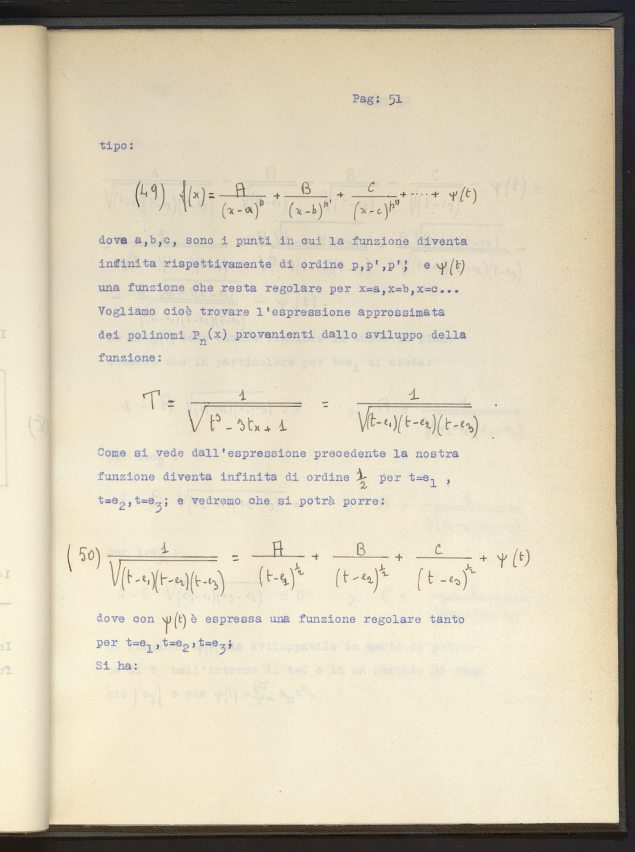 Pag: 51
tipo:
(49) f(x) = A/(x-a)^p + B/(x-b)^p' + C/(x-c)^p'' + ..... + ψ(t)
dove a,b,c, sono i punti in cui la funzione diventa
infinita rispettivamente di ordine p,p',p'; e ψ(t)
una funzione che resta regolare per x=a,x=b,x=c...
Vogliamo cioè trovare l'espressione approssimata
dei polinomi P_n(x) provenienti dallo sviluppo della
funzione:
T = 1/√(t³ - 3tx + 1) = 1/√((t-e₁)(t-e₂)(t-e₃)) .
Come si vede dall'espressione precedente la nostra
funzione diventa infinita di ordine 1/2 per t=e₁ ,
t=e₂,t=e₃; e vedremo che si potrà porre:
(50) 1/√((t-e₁)(t-e₂)(t-e₃)) = A/(t-e₁)^½ + B/(t-e₂)^½ + C/(t-e₃)^½ + ψ(t)
dove con ψ(t) è espressa una funzione regolare tanto
per t=e₁,t=e₂,t=e₃;
Si ha: